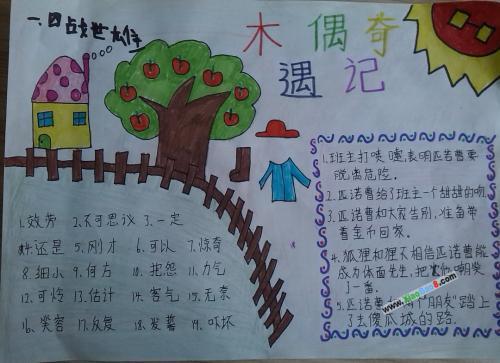 一.四战世伟
木偶奇
遇记
1.效劳 2.不可思议 3.一定
4.还是 5.刚才 6.可以 7.惊奇
8.细小 9.何方 10.抱怨 11.力气
12.可怜 13.估计 14.客气 15.无奈
16.笑容 17.反复 18.发誓 19.吓坏
1.班主打喷嚏,表明匹若曹要
脱离危险。
2.匹若曹给了班主一个甜甜的吻
3.匹若曹和大家告别,准备带
着金币回家。
4.狐狸和狸不相信匹若曹能
成为体面先生,把他嘲笑
了一番。
5.匹若曹和两个"朋友"踏上
了去傻瓜城的路.
www.xiaobao8.com